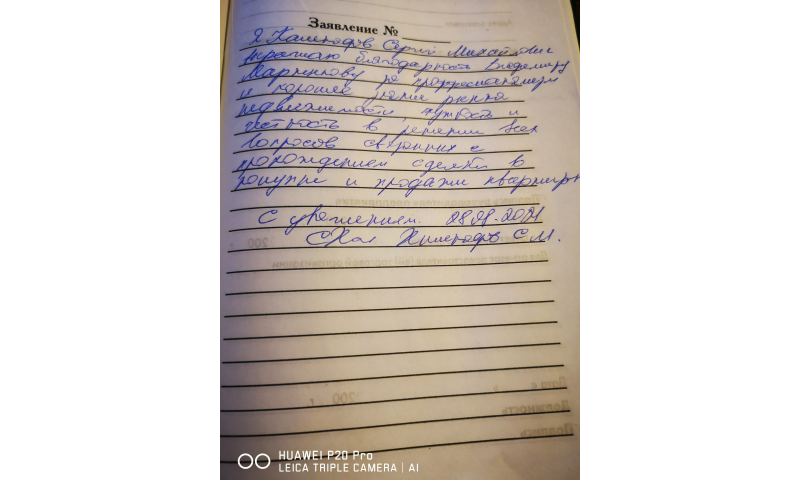 Заявление №
Я Сергей Михайлович
выражаю благодарность Владимиру
Мартынову за профессионализм
и хорошее знание рынка
недвижимости, чуткость и
честность в решении всех
вопросов связанных с
прохождением сделки в
покупке и продаже квартиры
С уважением 08.09.2021
С.М.
200
200 г.
Дата
Должность
Подпись
HUAWEI P20 Pro
LEICA TRIPLE CAMERA | AI